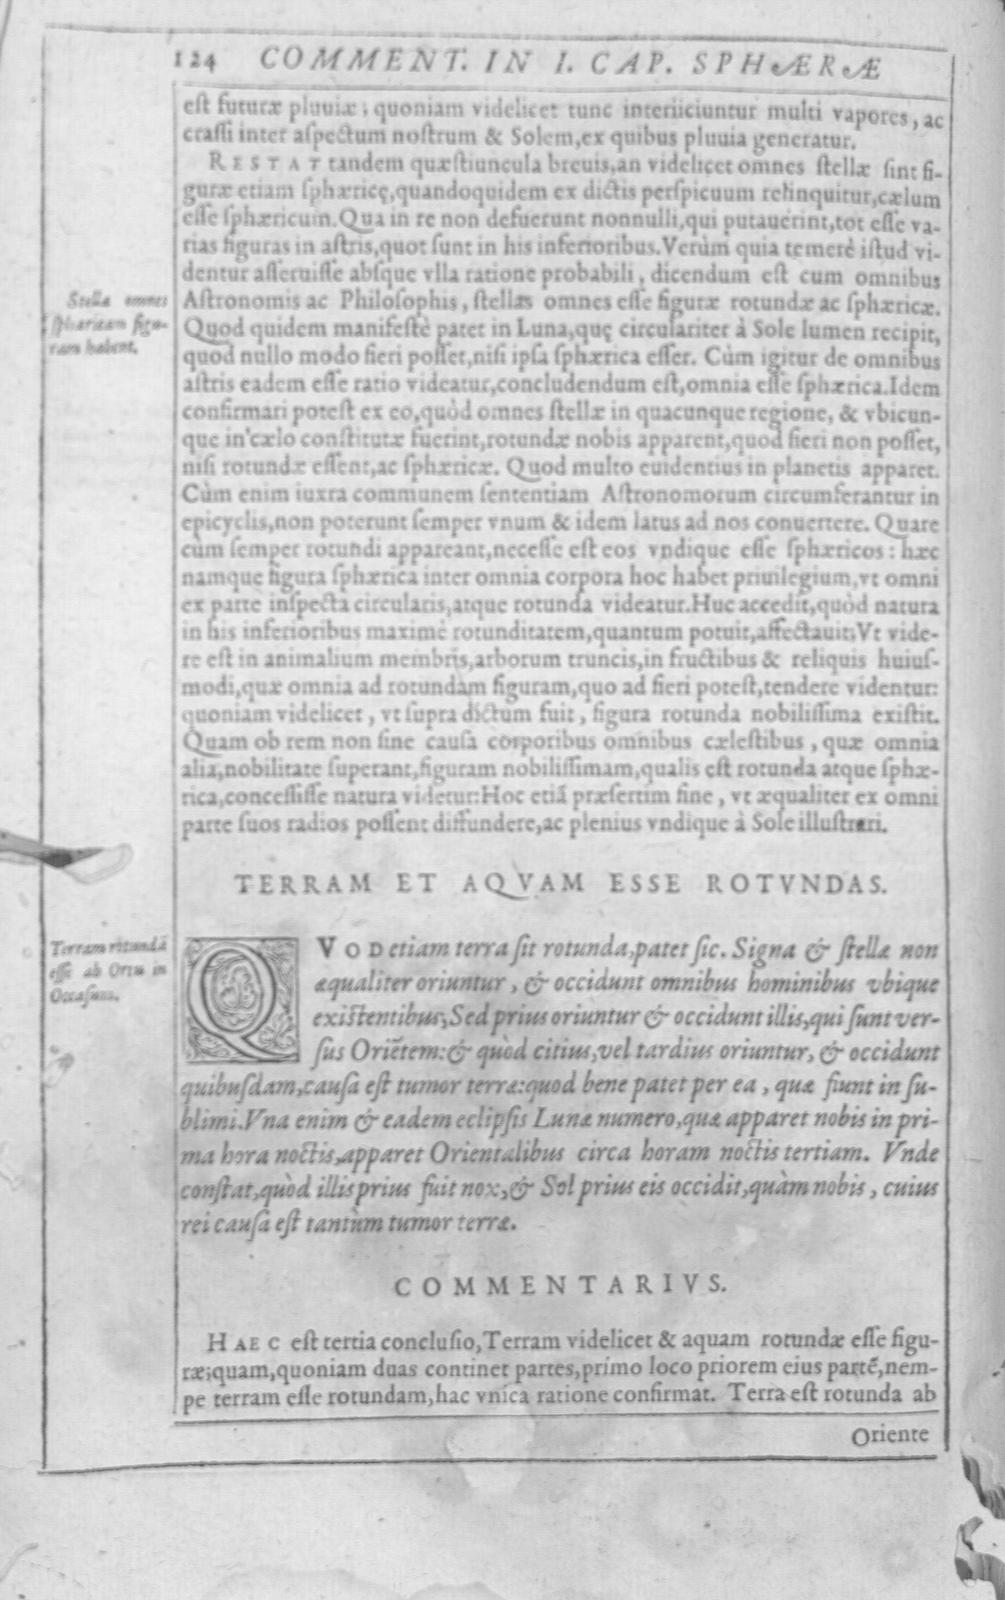 124 COMMENT. IN I. CAP. SPHÆRÆ
est futuræ pluuiæ; quoniam videlicet tunc interiiciuntur multi vapores, ac
crassi inter aspectum nostrum & Solem, ex quibus pluuia generatur.
RESTAT tandem quæstiuncula breuis, an videlicet omnes stellæ sint fi-
guræ etiam sphæricę, quandoquidem ex dictis perspicuum relinquitur, cælum
esse sphæricum. Qua in re non defuerunt nonnulli, qui putauerint, tot esse va-
rias figuras in astris, quot sunt in his inferioribus. Verùm quia temerè istud vi-
dentur asseruisse absque vlla ratione probabili, dicendum est cum omnibus
Stellæ omnes
sphæricam figu-
ram habent.
Astronomis ac Philosophis, stellas omnes esse figuræ rotundæ ac sphæricæ.
Quod quidem manifestè patet in Luna, quę circulariter à Sole lumen recipit,
quod nullo modo fieri posset, nisi ipsa sphærica esset. Cùm igitur de omnibus
astris eadem esse ratio videatur, concludendum est, omnia esse sphærica. Idem
confirmari potest ex eo, quòd omnes stellæ in quacunque regione, & vbicun-
que in cælo constitutæ fuerint, rotundæ nobis apparent, quod fieri non posset,
nisi rotundæ essent, ac sphæricæ. Quod multo euidentius in planetis apparet.
Cùm enim iuxta communem sententiam Astronomorum circumferantur in
epicyclis, non poterunt semper vnum & idem latus ad nos conuertere. Quare
cùm semper rotundi appareant, necesse est eos vndique esse sphæricos: hæc
namque figura sphærica inter omnia corpora hoc habet priuilegium, vt omni
ex parte inspecta circularis, atque rotunda videatur. Huc accedit, quòd natura
in his inferioribus maximè rotunditatem, quantum potuit, affectauit: Vt vide-
re est in animalium membris, arborum truncis, in fructibus & reliquis huius-
modi, quæ omnia ad rotundam figuram, quo ad fieri potest, tendere videntur:
quoniam videlicet, vt supra dictum fuit, figura rotunda nobilissima existit.
Quam ob rem non sine causa corporibus omnibus cælestibus, quæ omnia
alia, nobilitate superant, figuram nobilissimam, qualis est rotunda atque sphæ-
rica, concessisse natura videtur: Hoc etiã præsertim fine, vt æqualiter ex omni
parte suos radios possent diffundere, ac plenius vndique à Sole illustrari.
TERRAM ET AQVAM ESSE ROTVNDAS.
Terram rotundã
esse ab Ortu in
Occasum.
QVOD etiam terra sit rotunda, patet sic. Signa & stellæ non
æqualiter oriuntur, & occidunt omnibus hominibus vbique
existentibus; Sed prius oriuntur & occidunt illis, qui sunt ver-
sus Oriētem: & quòd citius, vel tardius oriuntur, & occidunt
quibusdam, causa est tumor terræ: quod bene patet per ea, quæ fiunt in su-
blimi. Vna enim & eadem eclipsis Lunæ numero, quæ apparet nobis in pri-
ma hora noctis, apparet Orientalibus circa horam noctis tertiam. Vnde
constat, quòd illis prius fuit nox, & Sol prius eis occidit, quàm nobis, cuius
rei causa est tantùm tumor terræ.
COMMENTARIVS.
HAEC est tertia conclusio, Terram videlicet & aquam rotundæ esse figu-
ræ; quam, quoniam duas continet partes, primo loco priorem eius partē, nem-
pe terram esse rotundam, hac vnica ratione confirmat. Terra est rotunda ab
Oriente